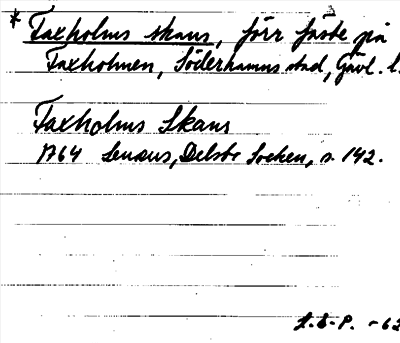 * Faxholms skans, förr fäste på
Faxholmen, Söderhamns stad, Gävl. l.
Faxholms Skans
1764 Lenæus, Delsbo Socken, s. 142.
L.E-P. -62